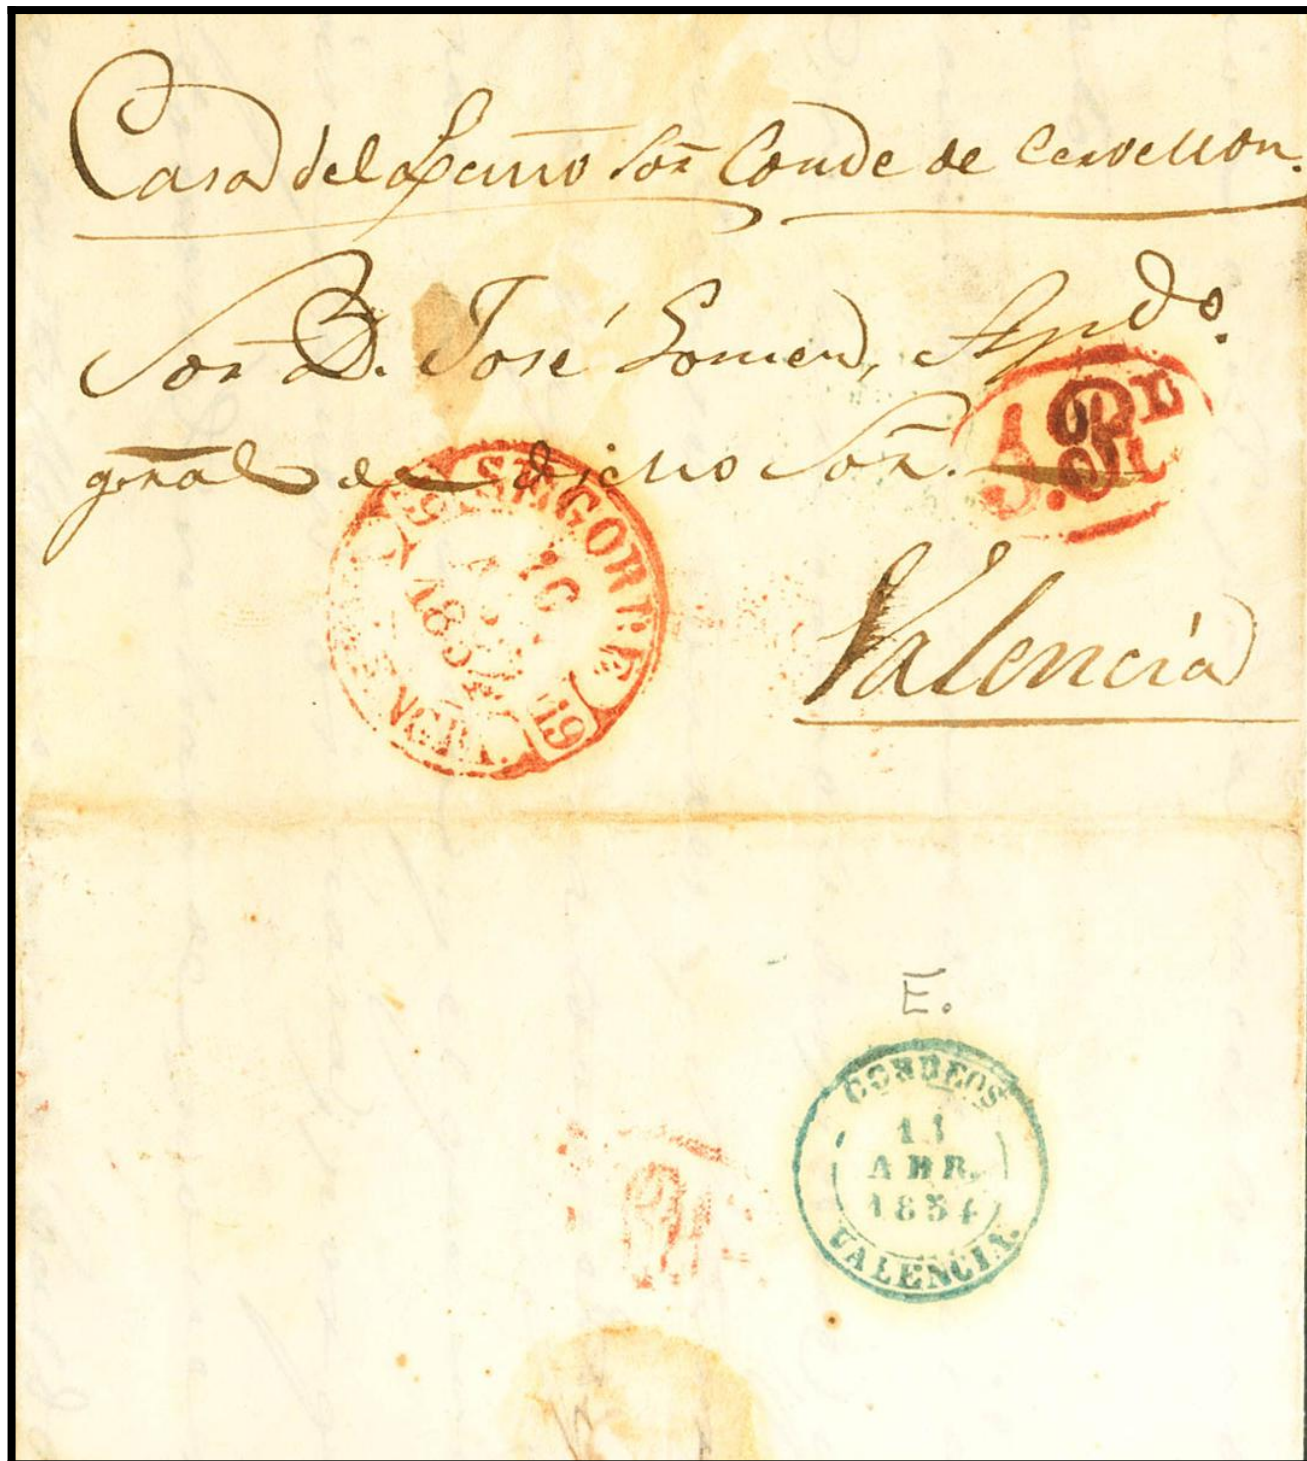 Casa del Excmo Sor Conde de Cervellon.
Sor D. José Gomez, Apdo.
gñral de dicho Sor.
Valencia
SEGORBE
10
1854
19
E.
CORREOS
11
ABR.
1854
VALENCIA.